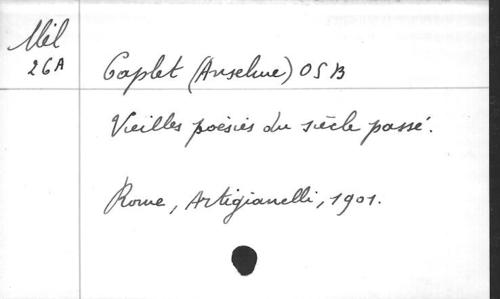 Mél
26A
Caplet (Anselme) OSB
Vieilles poésies du siècle passé.
Rome, Artigianelli, 1901.